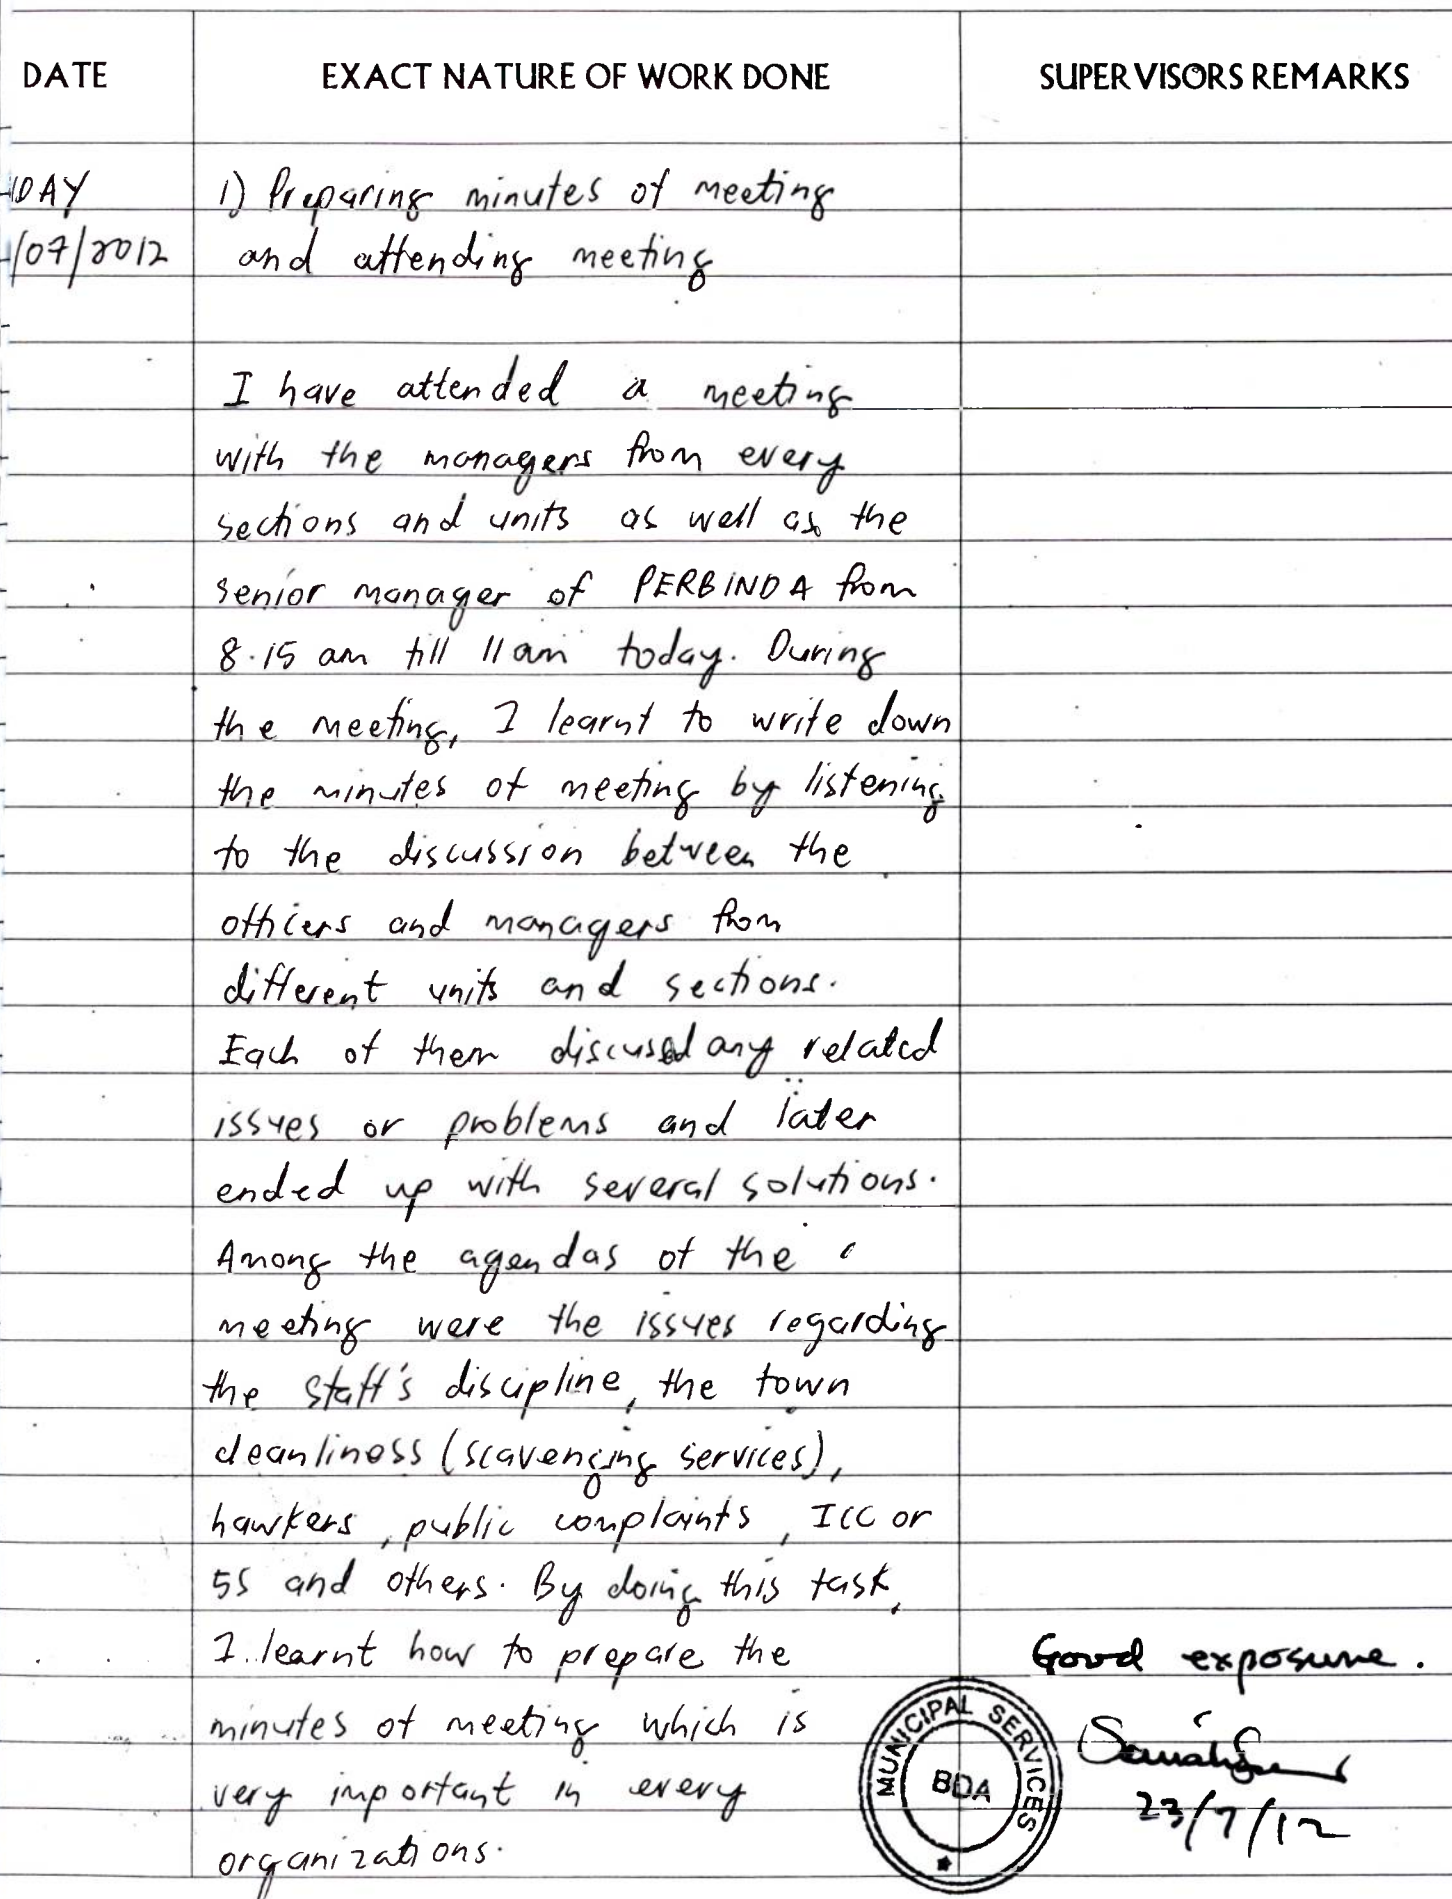 DATE EXACT NATURE OF WORK DONE SUPERVISORS REMARKS
DAY 1) Preparing minutes of meeting
/07/2012 and attending meeting
I have attended a meeting
with the managers from every
sections and units as well as the
senior manager of PERBINDA from
8.15 am till 11 am today. During
the meeting, I learnt to write down
the minutes of meeting by listening
to the discussion between the
officers and managers from
different units and sections.
Each of them discused any related
issues or problems and later
ended up with several solutions.
Among the agendas of the
meeting were the issues regarding
the staff's discipline, the town
cleanliness (scavenging services),
hawkers, public complaints, ICC or
5S and others. By doing this task,
I learnt how to prepare the
minutes of meeting which is
very important in every
organizations.
Good exposure.
MUNICIPAL SERVICES
BDA
23/7/12